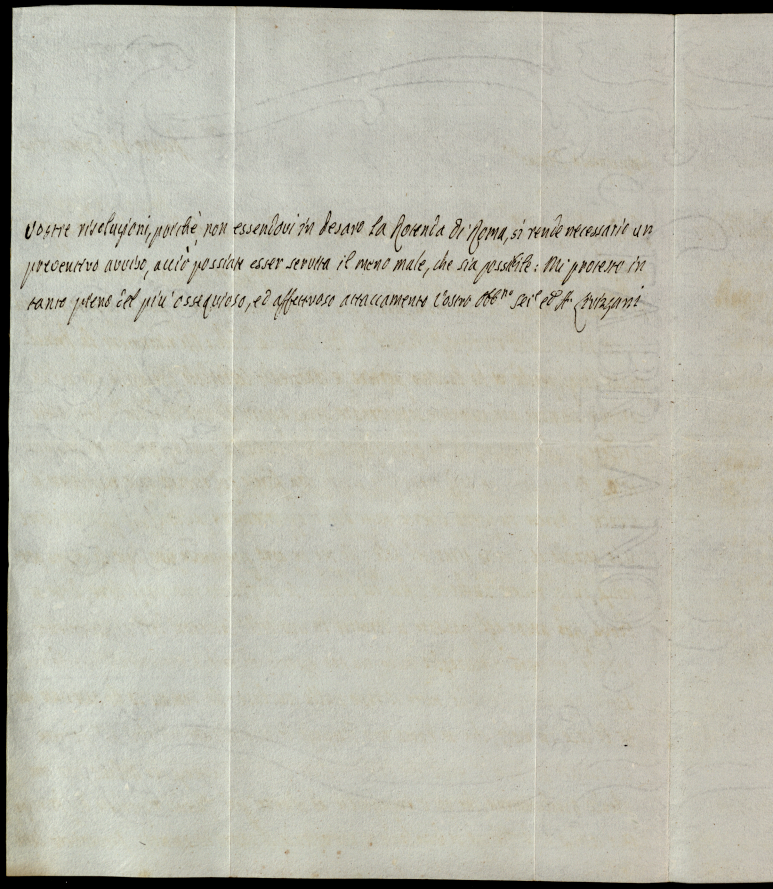 Vostre risoluzioni, poichè non essendovi in Pesaro la Rotonda di Roma, si rende necessario un
preventivo avviso, acciò possiate esser servita il meno male, che sia possibile: Mi protesto in
tanto pieno del più ossequioso, ed affettuoso attaccamento Vostro Obb.mo